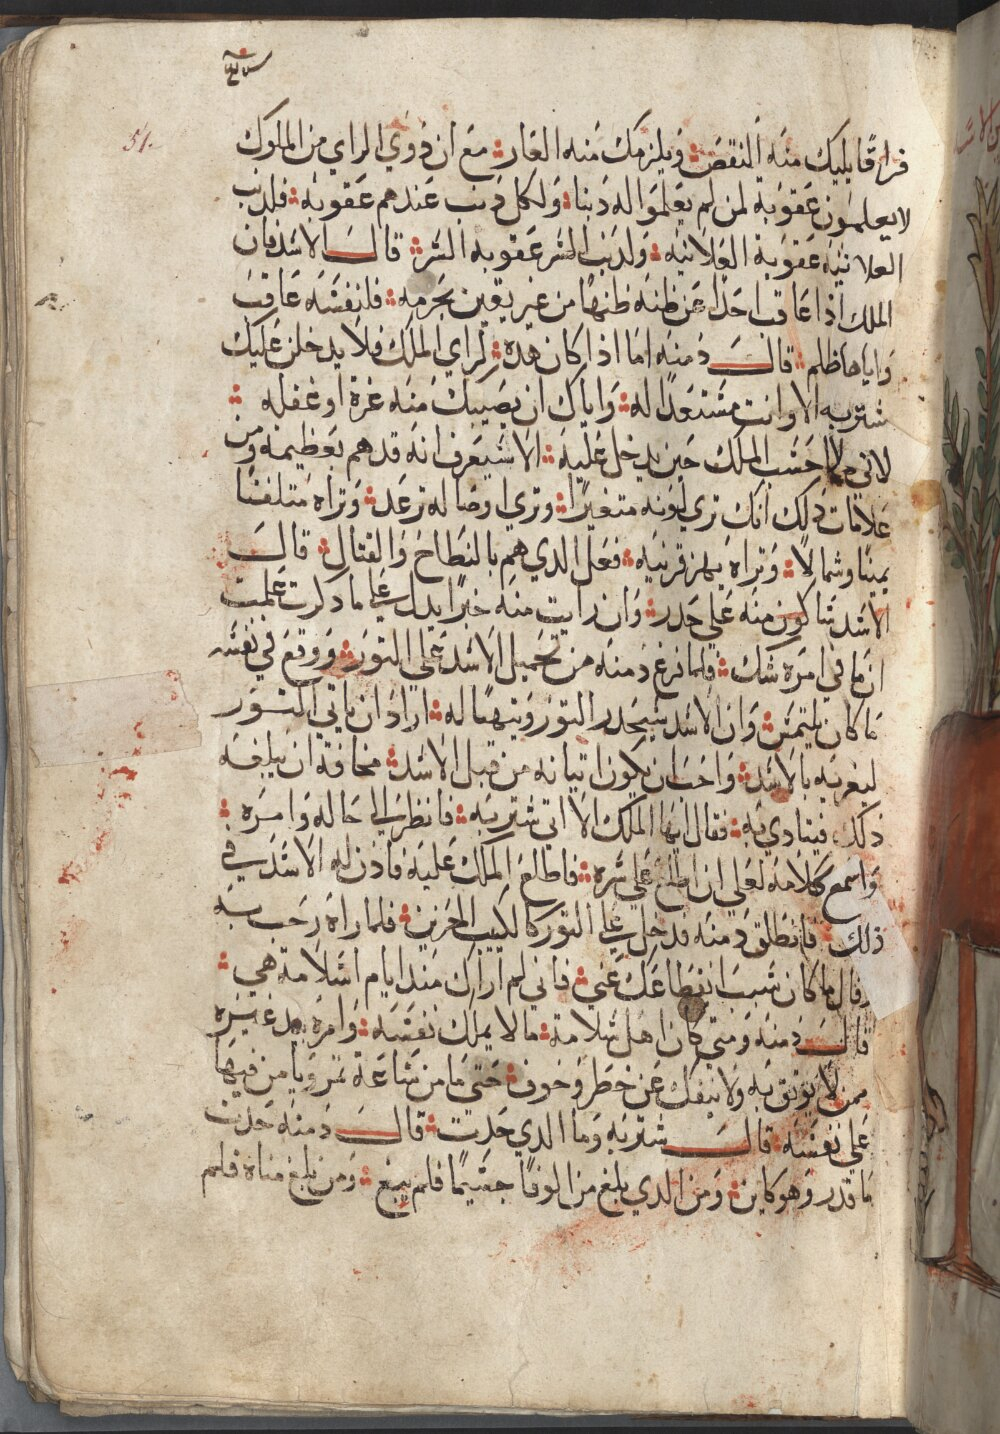 51.
فراقا يليك منه النقص ويلزمك منه العار مع ان ذوي الراي من الملوك
لا يعلمون عقوبة لمن لم يعلموا له دنبا ولكل دنب عندهم عقوبه فلدنب
العلانيه عقوبة العلانيه ولدنب السر عقوبه السر قال الاسد فان
الملك اذا عاقب احدا عن ظنه ظنها من غير يقين بجرمه فلنفسه عاقب
واياها ظلم قال دمنه اما اذا كان هده لراي الملك فلا يدخلن عليك
شتربه الا وانت مستعدا له واياك ان يصيبك منه غرة او غفله
لاني لا احسب الملك حين يدخل عليه الا سيعرف انه قد هم بعظيمه ومن
علامات دلك انك تري لونه متغيرا وتري اوصاله ترعد وتراه متلفتا
يمينا وشمالا وتراه يهز قرنيه فعل الدي هم بالنطاح والقتال قال
الاسد ساكون منه علي حدر وان رايت منه خبرا يدل علي ما دكرت علمت
ان ما في امره شك فلما فرغ دمنه من تحميل الاسد علي التور ووقع في نفسه
ما كان يلتمس وان الاسد سيحدر التور ويتهيا له اراد ان ياتي التور
ليغريه بالاسد واحب ان يكون اتيانه من قبل الاسد مخافة ان يبلغه
ذلك فيتادي به فقال ايها الملك الا اتي شتربه فانظر الي حاله وامره
واسمع كلامه لعلي ان اطلع علي سره فاطلع الملك عليه فاذن له الاسد في
ذلك فانطلق دمنه فدخل علي التور كالكييب الحزين فلما راه رحب به
وقال ما كان سبب انقطاعك عني فاني لم اراك مند ايام اسلامة هي
قال دمنه ومتي كان اهل سلامة ما لا يملك نفسه وامره بيد غيره
ممن لا يوتق به ولا ينفك عن خطر وخوف حتي ما من ساعة تمر ويامن فيها
علي نفسه قال شتربه وما الدي حدت قال دمنه حدت
ما قدر وهو كاين ومن الدي بلغ من الوفا جسيما فلم يبغ ومن بلغ مناه فلم